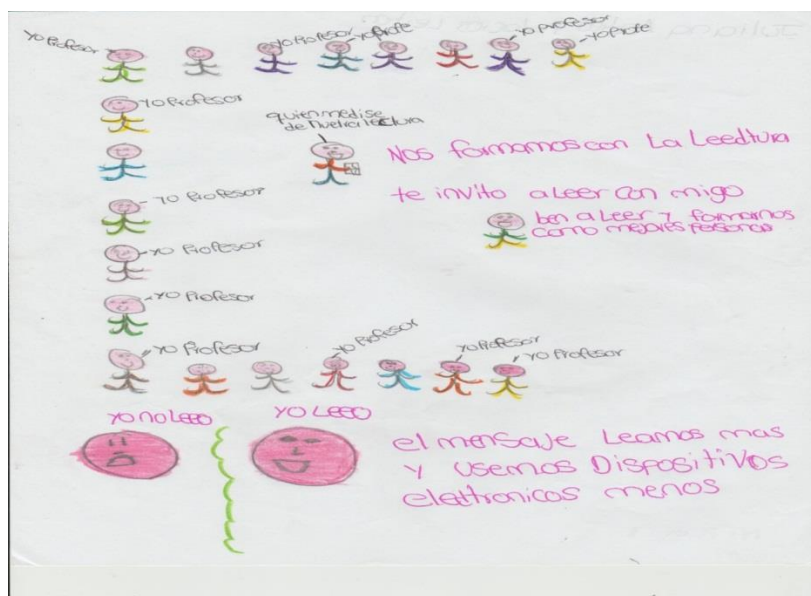 yo Profesor
yo Profesor
yo Profe
yo Profesor
yo Profe
yo Profesor
quien medise
de nuetra lectura
Nos formamos con La Leedtura
te invito a Leer con migo
yo Profesor
ben a Leer y formarnos
como mejores personas
yo Profesor
yo Profesor
yo Profesor
yo Profesor
yo Profesor
yo Profesor
yo no Leeo
yo Leeo
el mensaje Leamos mas
y usemos Dispositivos
elettronicos menos